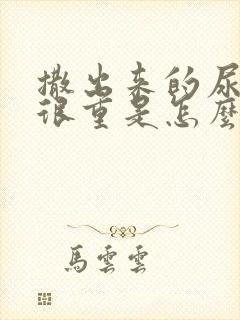 撒出来的尿
很重是怎麼
馬雲雲